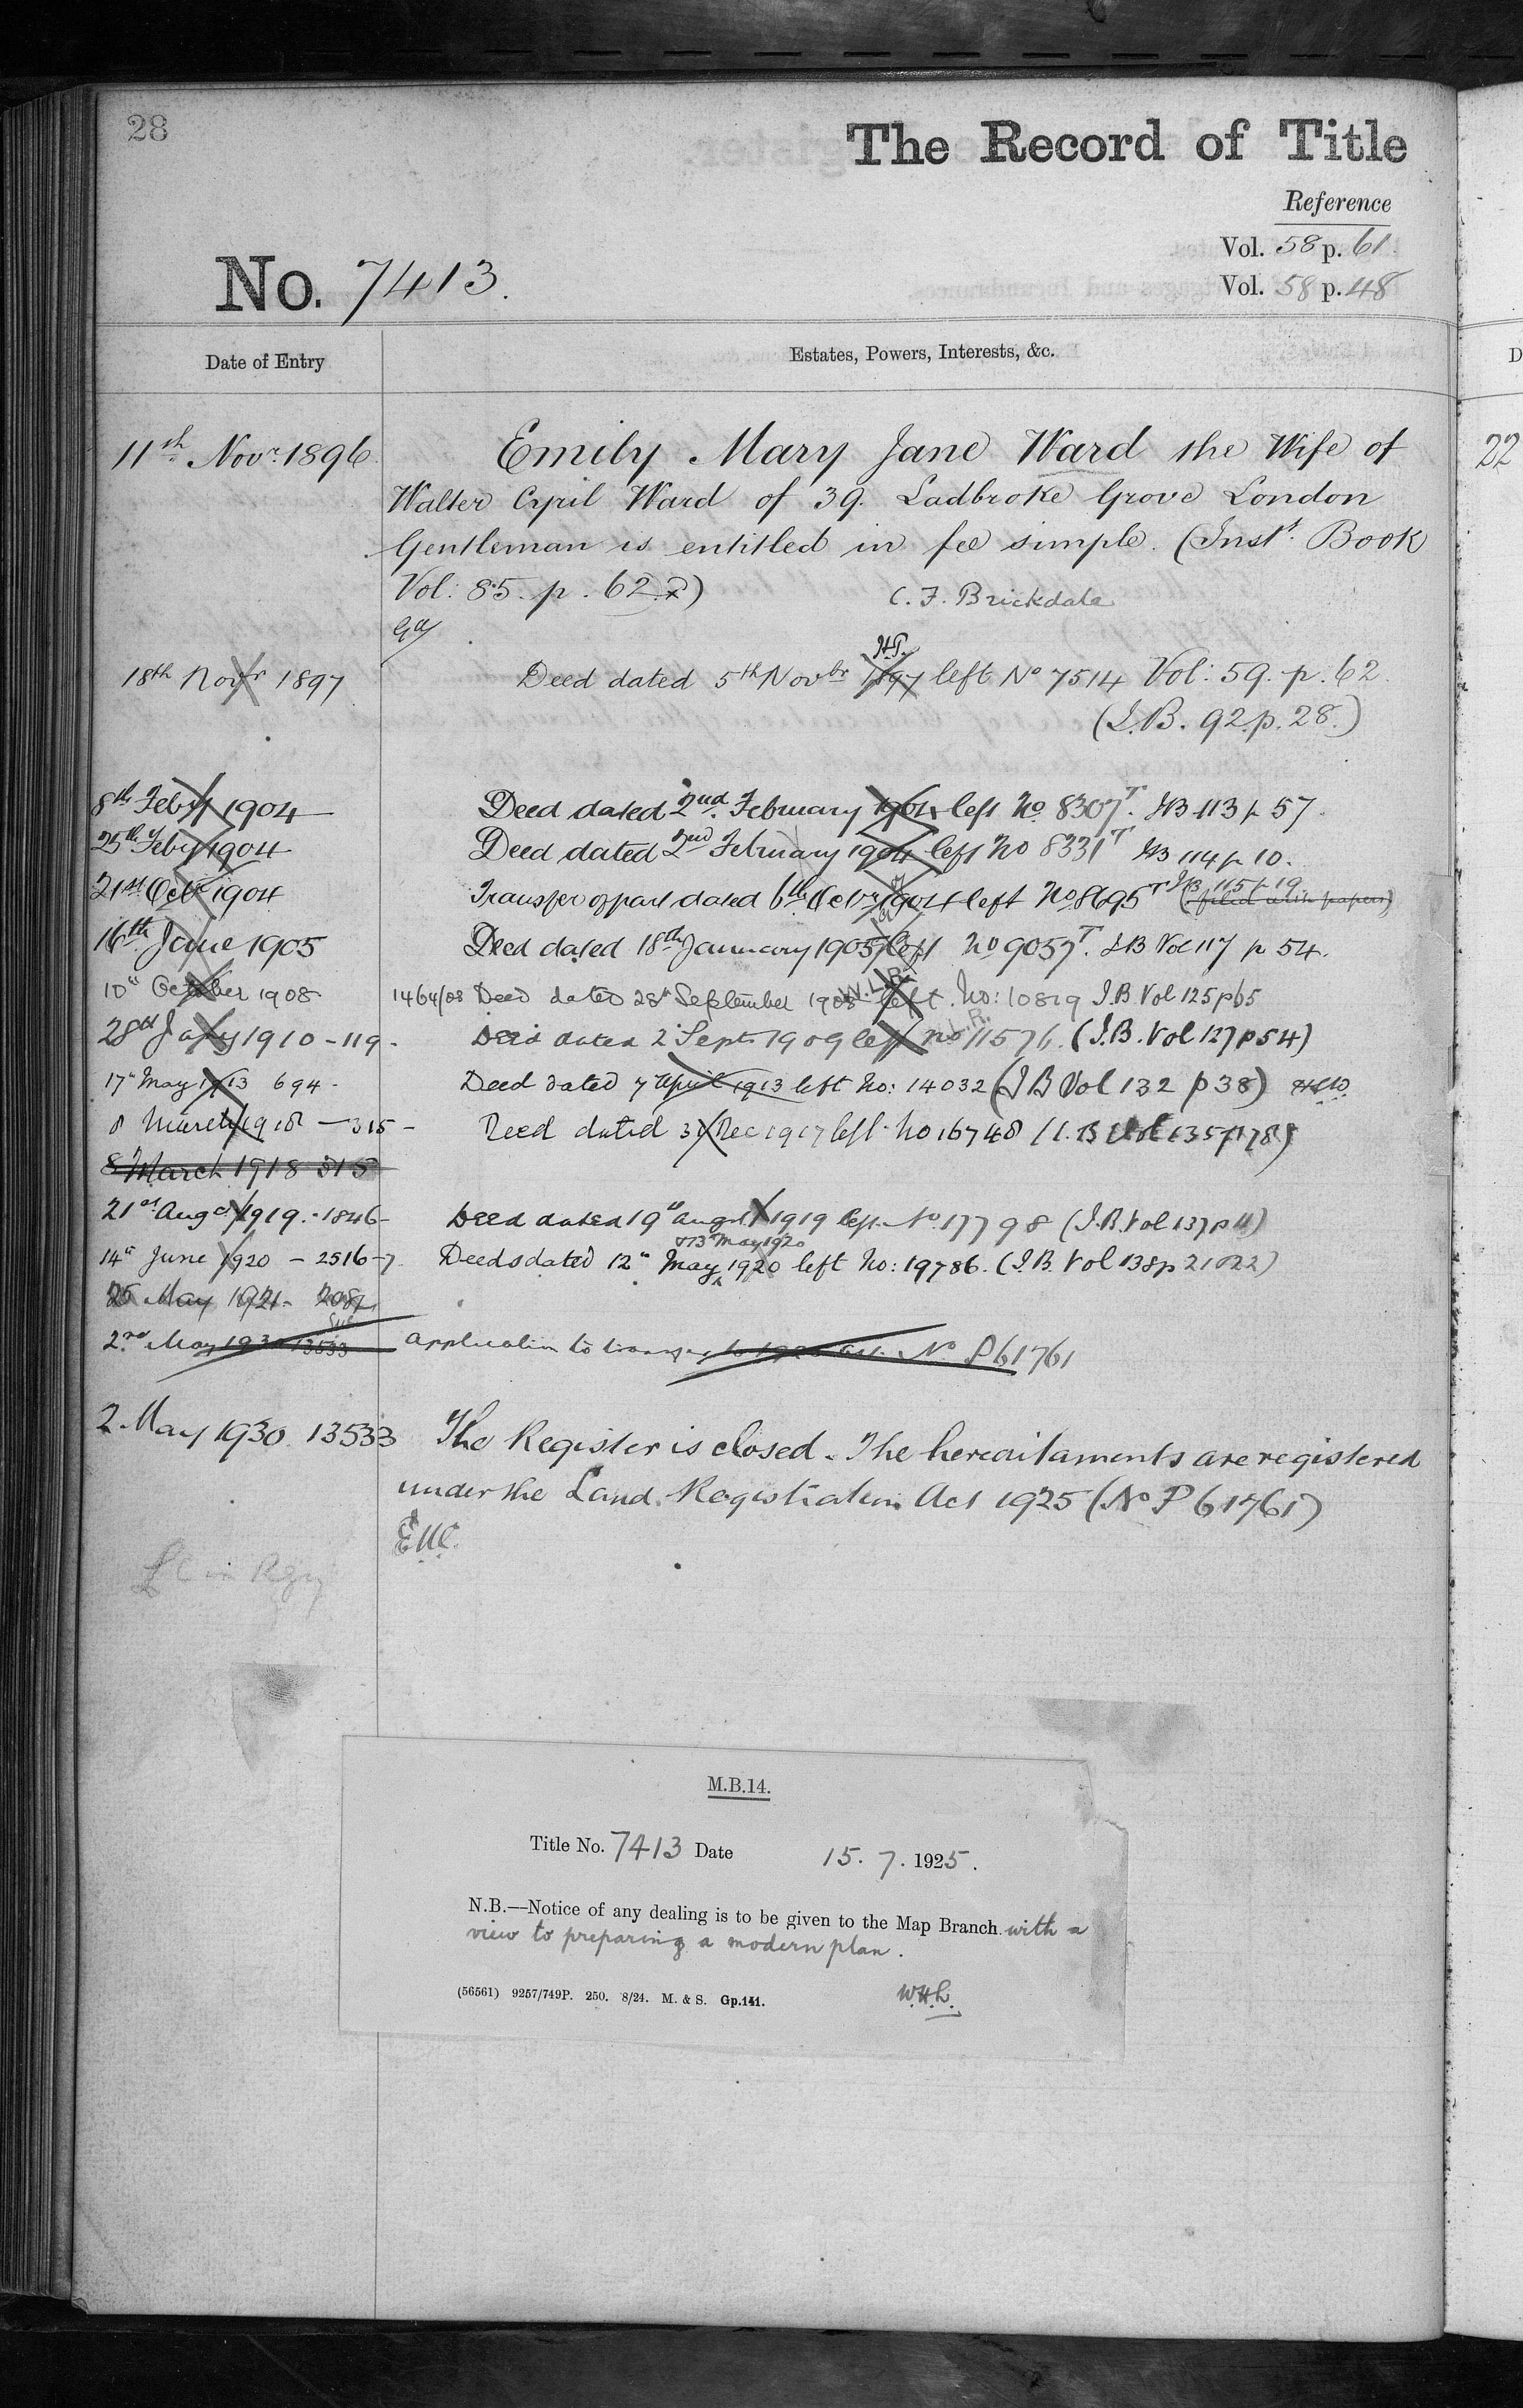 28
The Record of Title
Reference
Vol. 58 p. 61
Vol. 58 p. 48
No. 7413.
Date of Entry
Estates, Powers, Interests, &c.
11th Novr. 1896 Emily Mary Jane Ward the Wife of
Walter Cyril Ward of 39. Ladbroke Grove London
Gentleman is entitled in fee simple. (Inst. Book
Vol: 85. p. 62.)
C. F. Brickdale
18th Novr 1897 Deed dated 5th Novbr 1897 left No 7514 Vol: 59. p. 62.
(I.B. 92. p. 28.)
8th Feby 1904 Deed dated 2nd February 1904 left No 8307T. IB 113 p 57.
25th Feby 1904 Deed dated 2nd February 1904 left No 8331T IB 114 p 10.
21st Oct 1904 Transfer of part dated 6th Octr 1904 left No 8695T IB 115 p 19 (filed with papers)
16th June 1905 Deed dated 18th January 1905 left No 9057T. IB Vol 117 p 54.
10th October 1908 1464/08 Deed dated 28th September 1908 left. No: 10819 I.B. Vol 125 p 65
28th Jany 1910 - 119 - Deed dated 2 Sept. 1909 left No 11576. (I.B. Vol 127 p 54)
17th May 1913 694 - Deed dated 7 April 1913 left No: 14032 (I B Vol 132 p 38)
8 March 1918 - 315 - Deed dated 31 Dec 1917 left No 16748 (I.B Vol 135 p 178)
8 March 1918 315
21st Augt 1919. - 1846 - Deed dated 19th August 1919 left No. 17798 (I.B. Vol 137 p 11)
& 13th May 1920
14th June 1920 - 2516-7 Deeds dated 12th May 1920 left No: 19786. (I.B. Vol 138 p 21 & 22)
26 May 1921 - 2084
2nd May 1930 13533 Application to transfer to 1925 Act. No P61761
2 May 1930 13533 The Register is closed. The hereditaments are registered
under the Land Registration Act 1925 (No P 61761)
M.B.14.
Title No. 7413 Date 15. 7. 1925.
N.B.—Notice of any dealing is to be given to the Map Branch with a
view to preparing a modern plan.
(56561) 9257/749P. 250. 8/24. M. & S. Gp.141.
W.H.L.
D
22